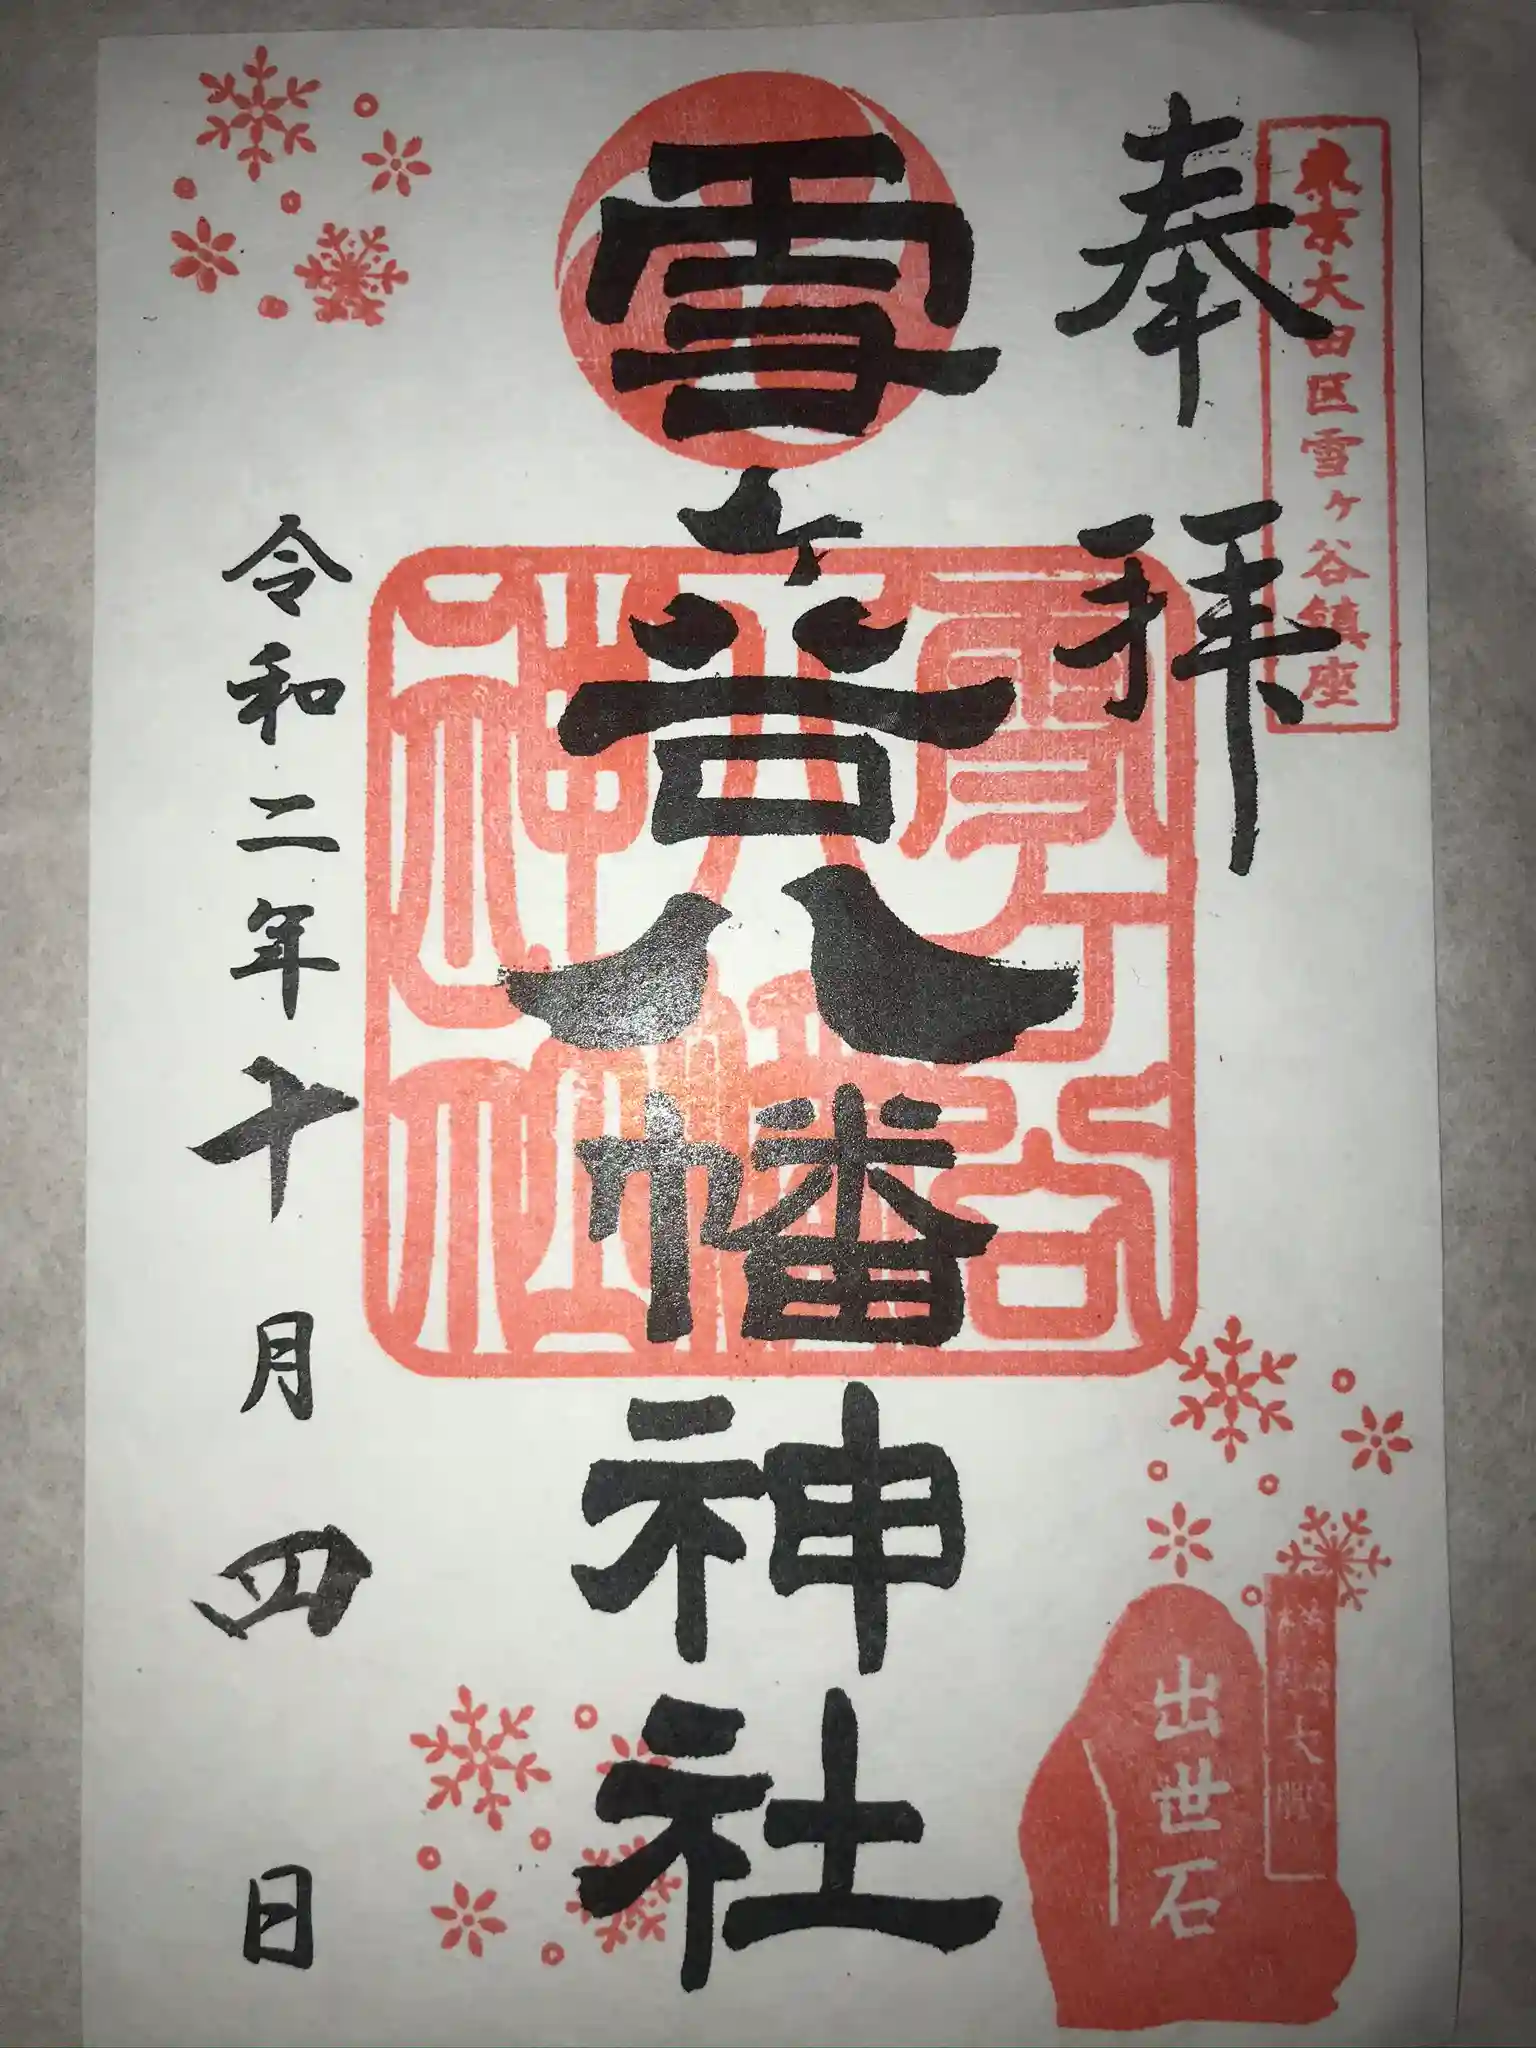 東京大田区雪ヶ谷鎮座
奉拝
雪ヶ谷八幡神社
雪ヶ谷
八幡
神社
令和二年十月四日
大鵬
出世石